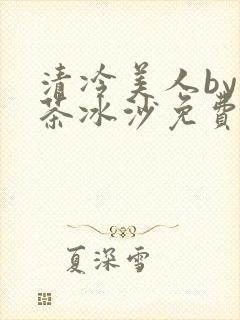 清冷美人by
茶冰沙免费
夏深雪